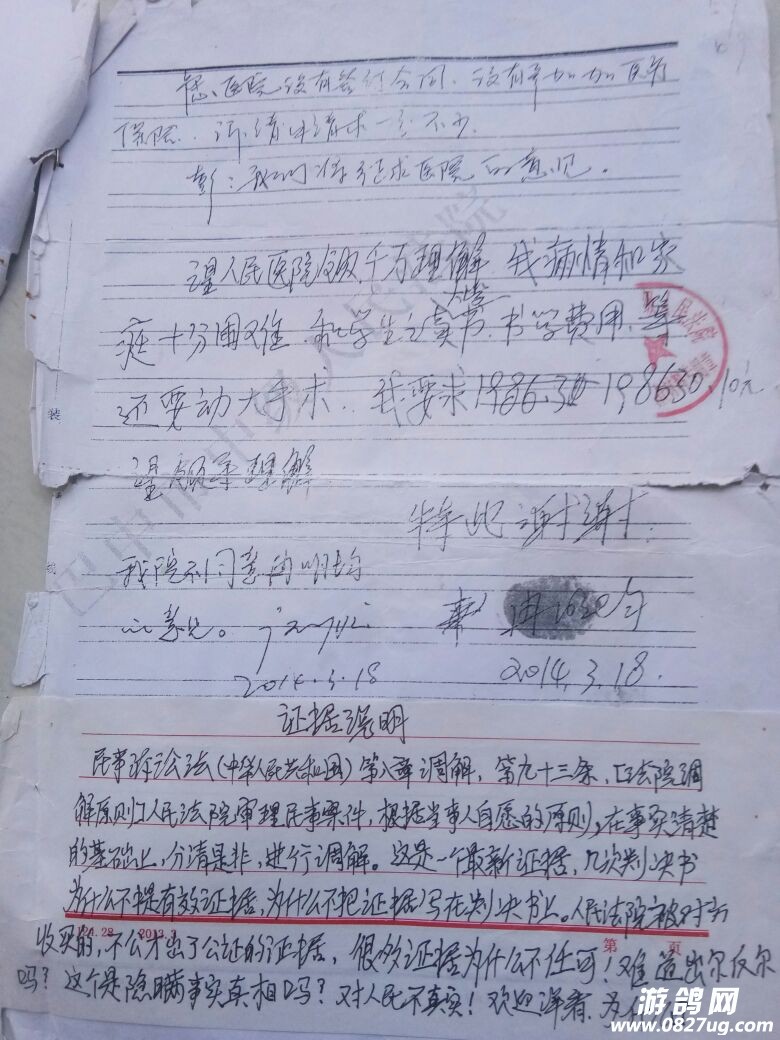 医院没有签订合同,没有
保险.诉请请求一分不少.
彭:我们将征求医院的意见。
望人民医院 千万理解 我病情和家
庭十分困难.和学生之 书学费用,等
还要动大手术..我要求 198630.10元
望领导理解
特此谢谢.
我院不同意
意见。
2014.3.18
2014.3.18.
装
巴中市 人民 院
证据说明
民事诉讼法(中华人民共和国)第八章调解,第九十三条,〔法院调
解原则〕人民法院审理民事案件,根据当事人自愿的原则,在事实清楚
的基础上,分清是非,进行调解。这是一个最新证据,几次判决书
为什么不提有效证据,为什么不把证据写在判决书上。人民法院被对方
2013.3
第 页
收买的,不公才出了公证的证据,很多证据为什么不任可!难道出尔反尔
吗?这个是隐瞒事实真相吗?对人民不真实!欢迎 看.为什么
游鸽网
www.0827ug.com